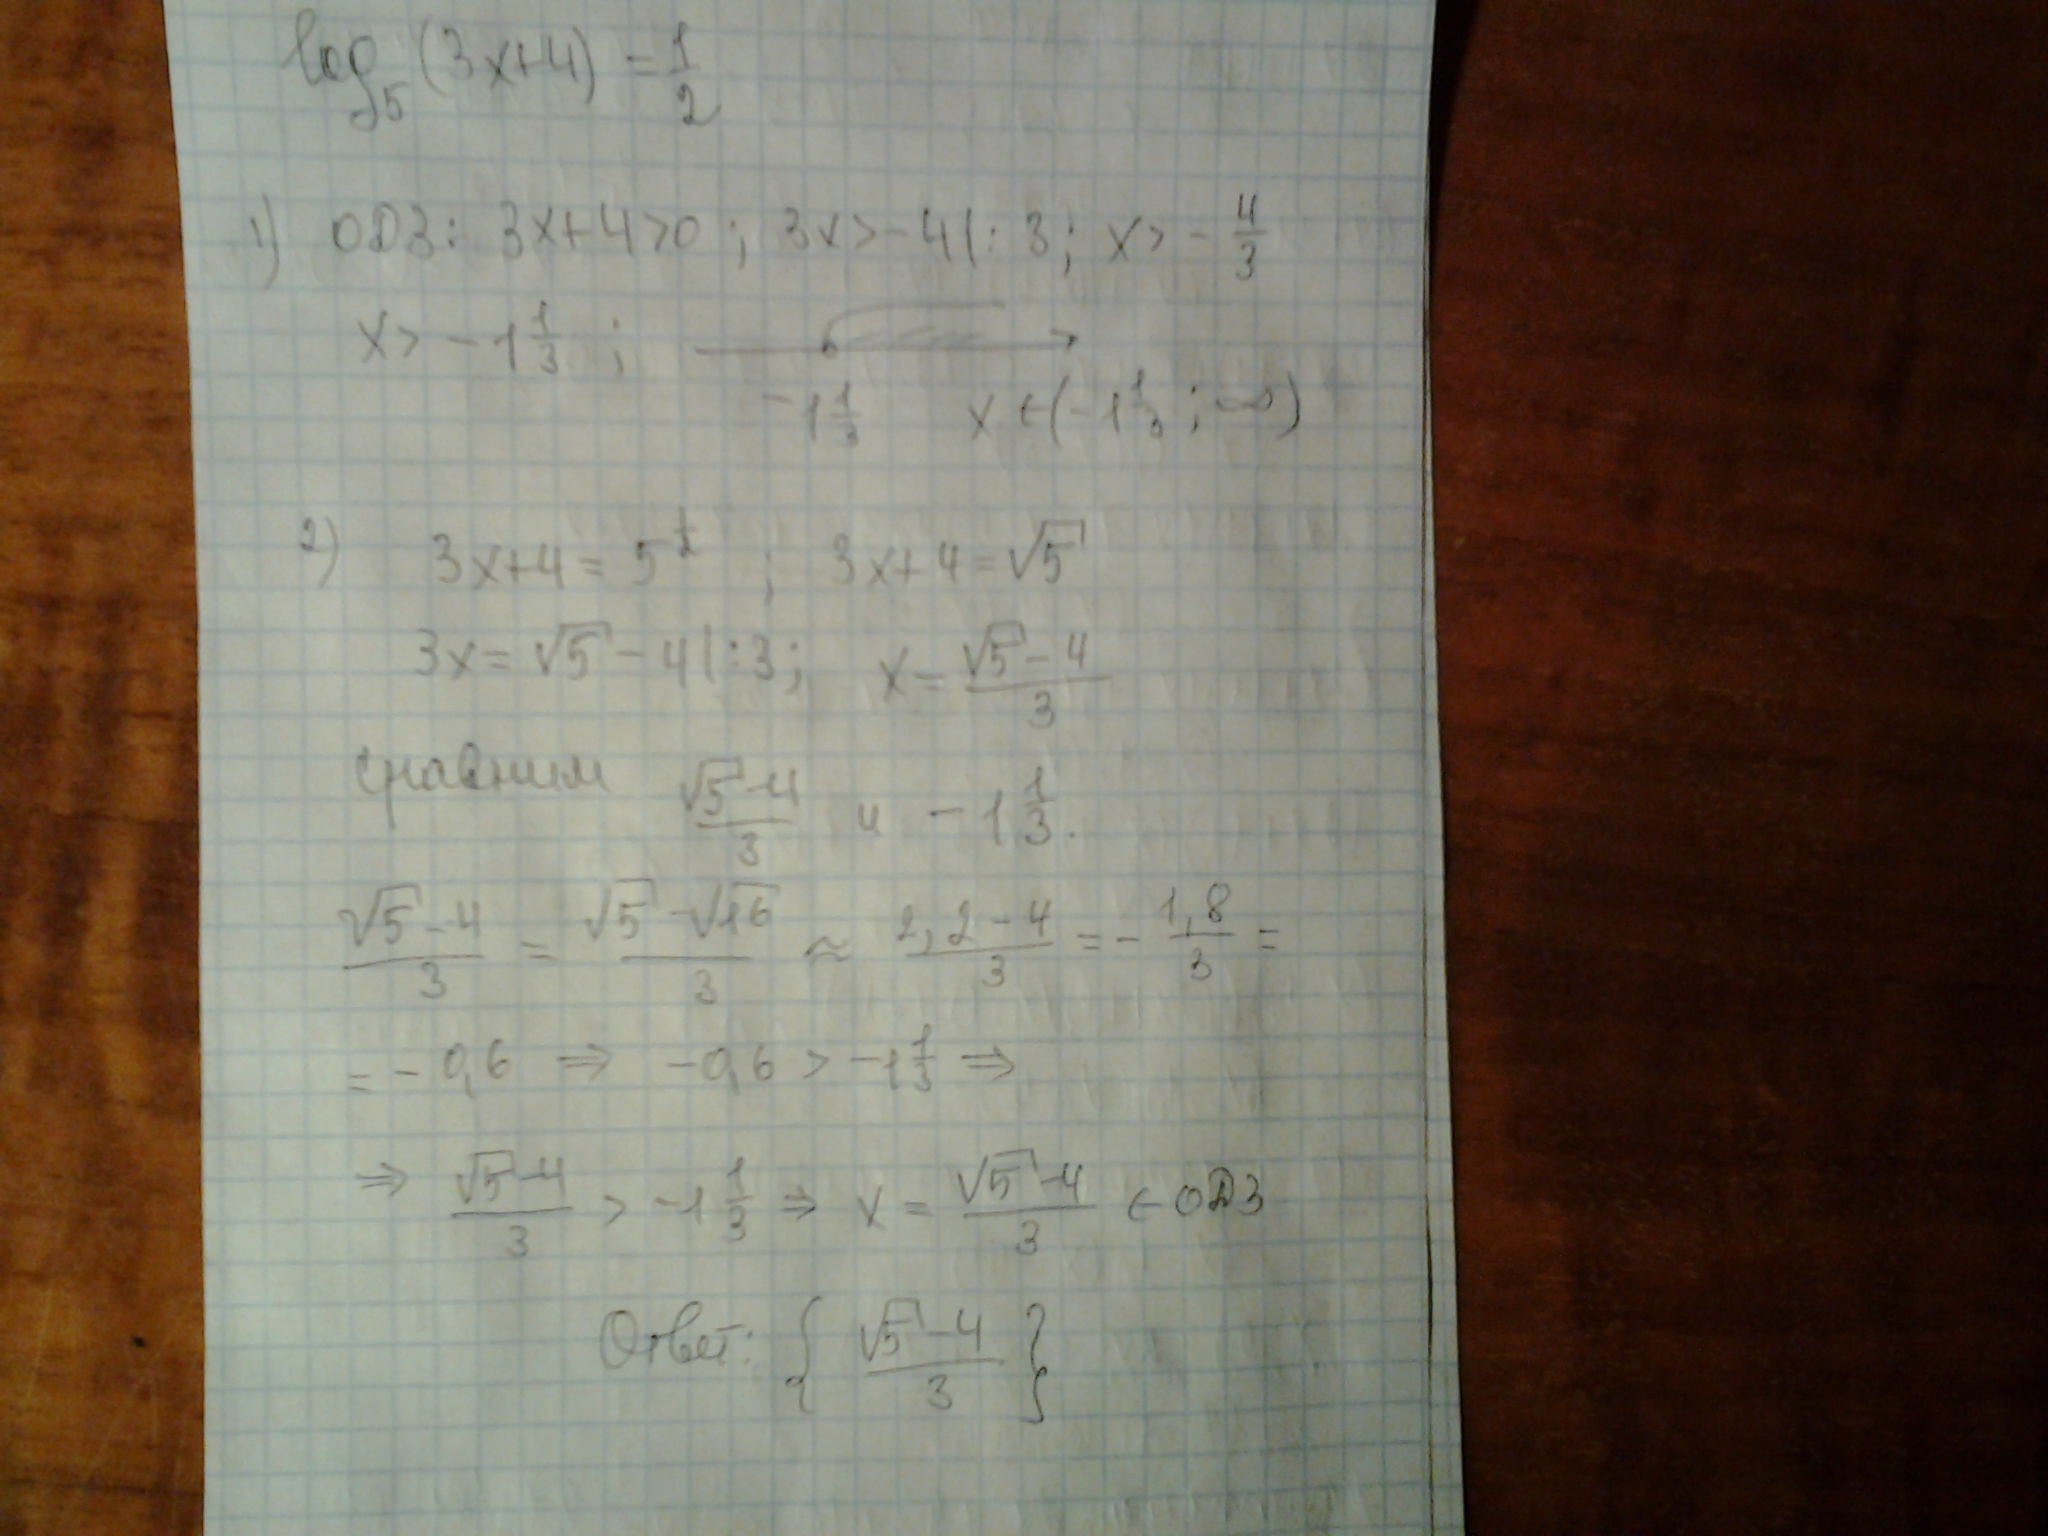 log₅(3x+4) = 1/2
1) ОДЗ: 3x+4>0 ; 3x>-4|:3; x> -4/3
x> -1 1/3 ;
-1 1/3 x∈(-1 1/3 ; ∞)
2) 3x+4 = 5^(1/2) ; 3x+4=√5
3x=√5-4|:3; x= (√5-4)/3
сравним (√5-4)/3 и -1 1/3.
(√5-4)/3 = (√5-√16)/3 ≈ (2,2-4)/3 = - 1,8/3 =
= -0,6 ⇒ -0,6 > -1 1/3 ⇒
⇒ (√5-4)/3 > -1 1/3 ⇒ x = (√5-4)/3 ∈ ОДЗ
Ответ: { (√5-4)/3 }